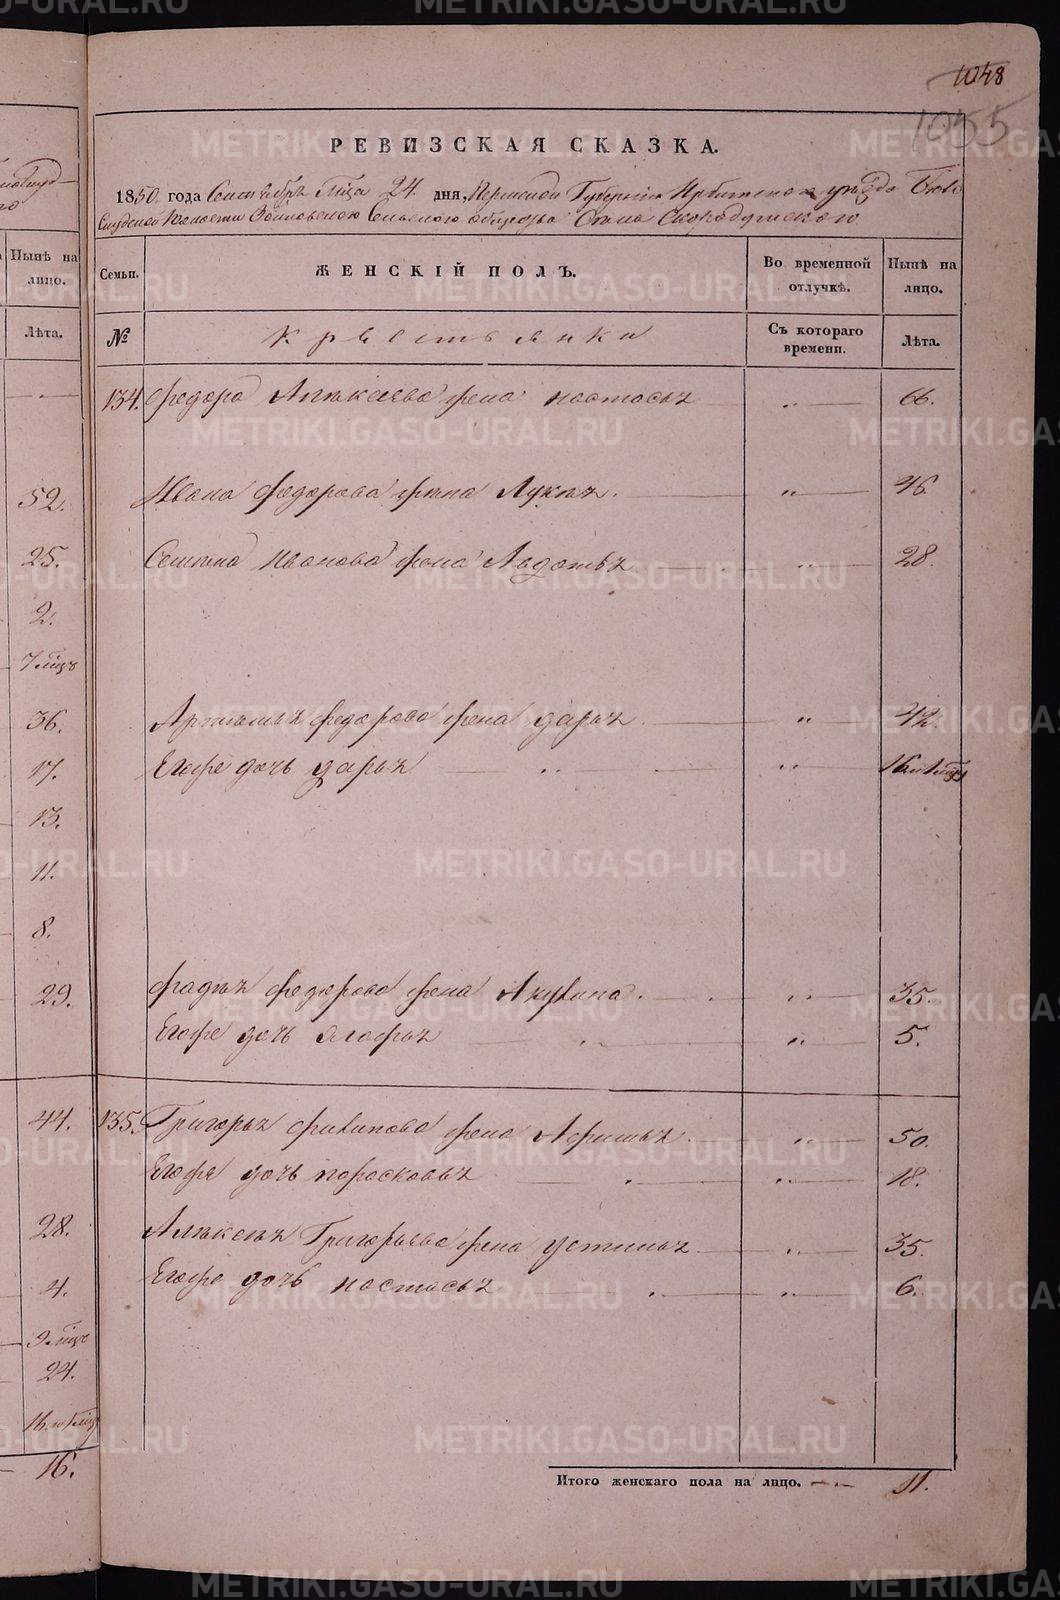 1048
1055
РЕВИЗСКАЯ СКАЗКА.
1850. года Сентября м-ца 24. дня, Пермской Губернии Ирбитскаго уезда
Волости Сельскаго общества Села Скородумскаго
Семьи. ЖЕНСКІЙ ПОЛЪ. Во временной отлучкѣ. Нынѣ на лицо.
№ крестьянки Съ котораго времени. Лѣта.
134. Федора Алексеева жена настасья „ 66.
Ивана Федорова жена Лукея. „ 46
Семена Иванова жена Авдотья „ 28.
Артемья Федорова жена дарья „ 42.
Егоже дочь дарья „ „ 16
Фадея Федорова жена Акулина. „ 35.
Егоже дочь Агафья „ 5.
135. Григорья филипова жена Афимья „ 50.
Егоже дочь парасковья „ 18.
Алексея Григорьева жена устинья „ 35.
Егоже дочь настасья „ 6.
Итого женскаго пола на лицо. 11.
Нынѣ на лицо.
Лѣта.
52.
25.
2.
7 м-цъ
36.
17.
13.
11.
8.
29.
44.
28.
4.
9 м-цъ
24.
16.
16.
METRIKI.GASO-URAL.RU